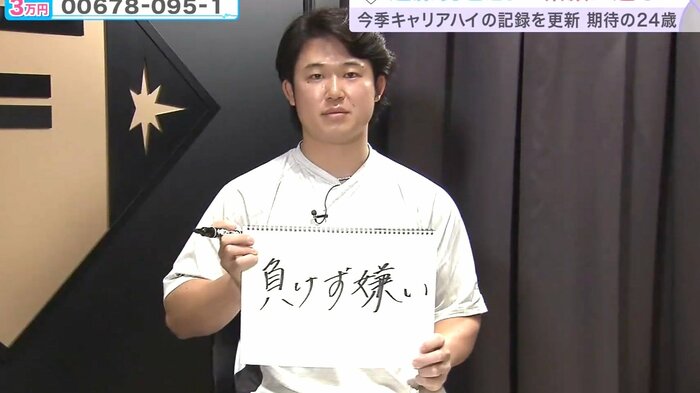 3万円
00678-095-1
今季キャリアハイの記録を更新 期待の24歳
負けず嫌い